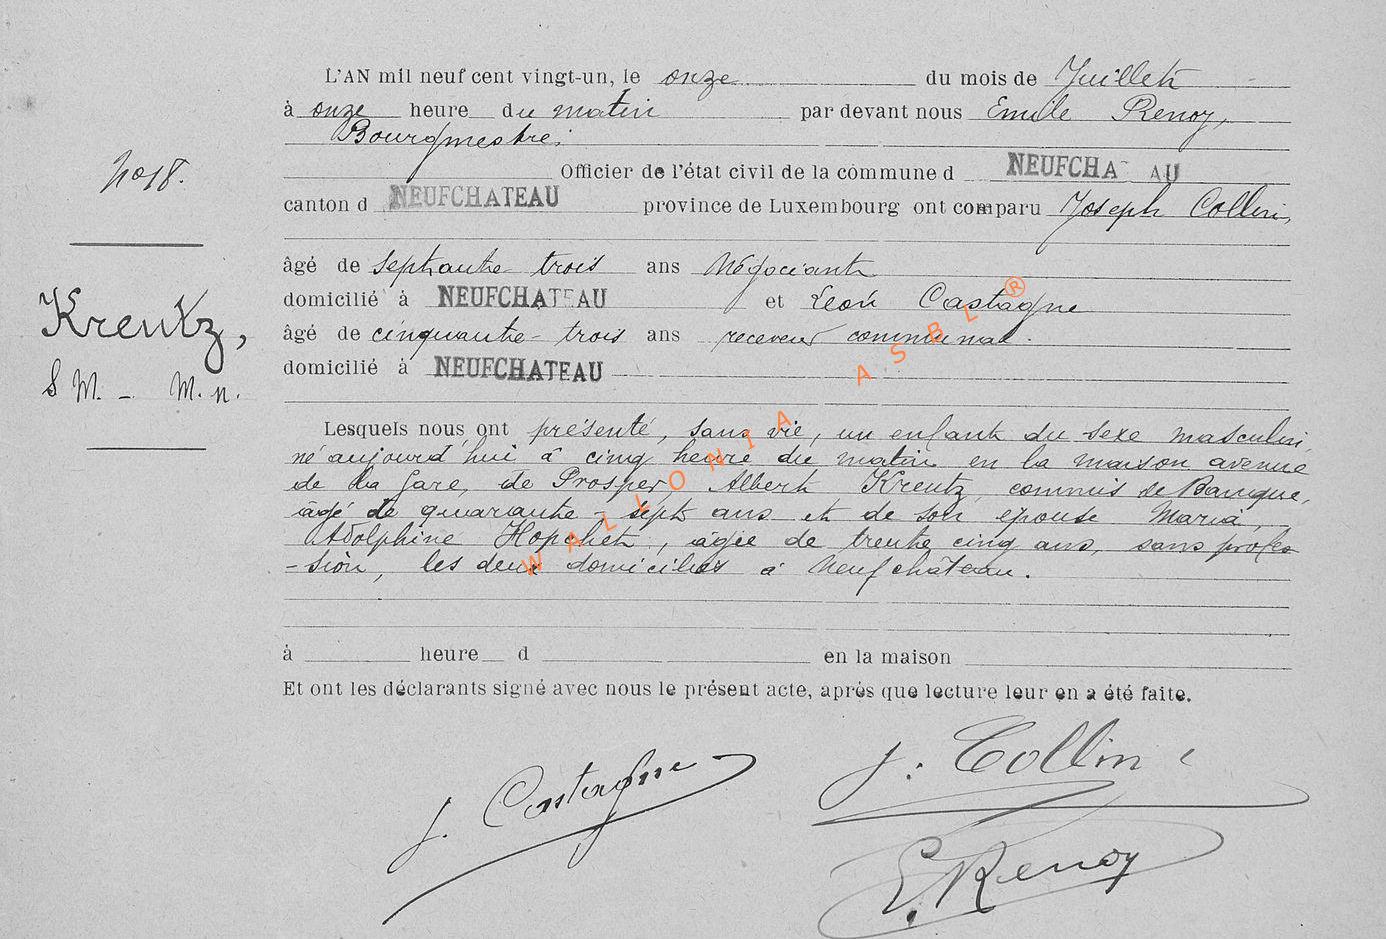 L'AN mil neuf cent vingt-un, le onze du mois de Juillet
à onze heure du matin par devant nous Emile Renoy,
Bourgmestre
Officier de l'état civil de la commune d NEUFCHA AU
canton d NEUFCHATEAU province de Luxembourg ont comparu Joseph Collin,
âgé de septante trois ans Négociant
domicilié à NEUFCHATEAU et Léon Castagne
âgé de cinquante-trois ans receveur communal.
domicilié à NEUFCHATEAU
Lesquels nous ont présenté, sans vie, un enfant du sexe masculin
né aujourd'hui à cinq heure du matin en la maison avenue
de la Gare, de Prosper, Albert Kreutz, commis de Banque,
âgé de quarante-sept ans et de son épouse Maria,
Adolphine Hopchet, âgée de trente cinq ans, sans profes
-sion, les deux domiciliés à Neufchâteau.
à heure d en la maison
Et ont les déclarants signé avec nous le présent acte, après que lecture leur en a été faite.
No 18.
Kreutz,
S M. - M. n.
J. Castagne
J. Collin
E. Renoy
WALLONIA ASBL ®